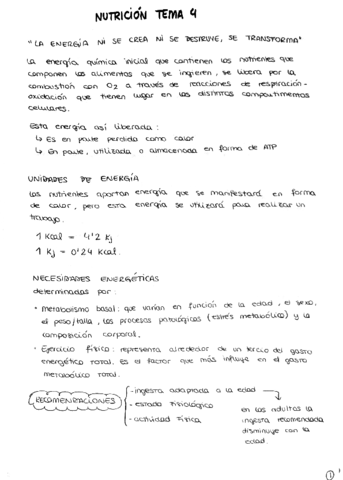 NUTRICIÓN TEMA 4
"LA ENERGÍA NI SE CREA NI SE DESTRUYE, SE TRANSFORMA"
La energía química inicial que contienen los nutrientes que
componen los alimentos que se ingieren, se libera por la
combustión con O2 a través de reacciones de respiración-
oxidación que tienen lugar en los distintos compartimentos
celulares.
Esta energía así liberada:
↳ Es en parte perdida como calor
↳ En parte, utilizada o almacenada en forma de ATP
UNIDADES DE ENERGÍA
Los nutrientes aportan energía que se manifestará en forma
de calor, pero esta energía se utilizará para realizar un
trabajo.
1 Kcal = 4'2 Kj
1 Kj = 0'24 Kcal.
NECESIDADES ENERGÉTICAS
determinadas por:
· Metabolismo basal: que varían en función de la edad, el sexo,
el peso/talla, los procesos patológicos (estrés metabólico) y la
composición corporal.
· Ejercicio físico: representa alrededor de un tercio del gasto
energético total. Es el factor que más influye en el gasto
metabólico total.
RECOMENDACIONES
- ingesta adaptada a la edad →
- estado fisiológico
- actividad física
en los adultos la
ingesta recomendada
disminuye con la
edad.
1